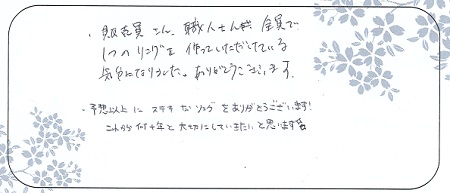 ・販売員さん、職人さん等 全員で
1つのリングを 作っていただいている
気分になりました。ありがとうございます。
・予想以上に ステキ なリングをありがとうございます!
これから何十年と 大切にしていきたいと思います